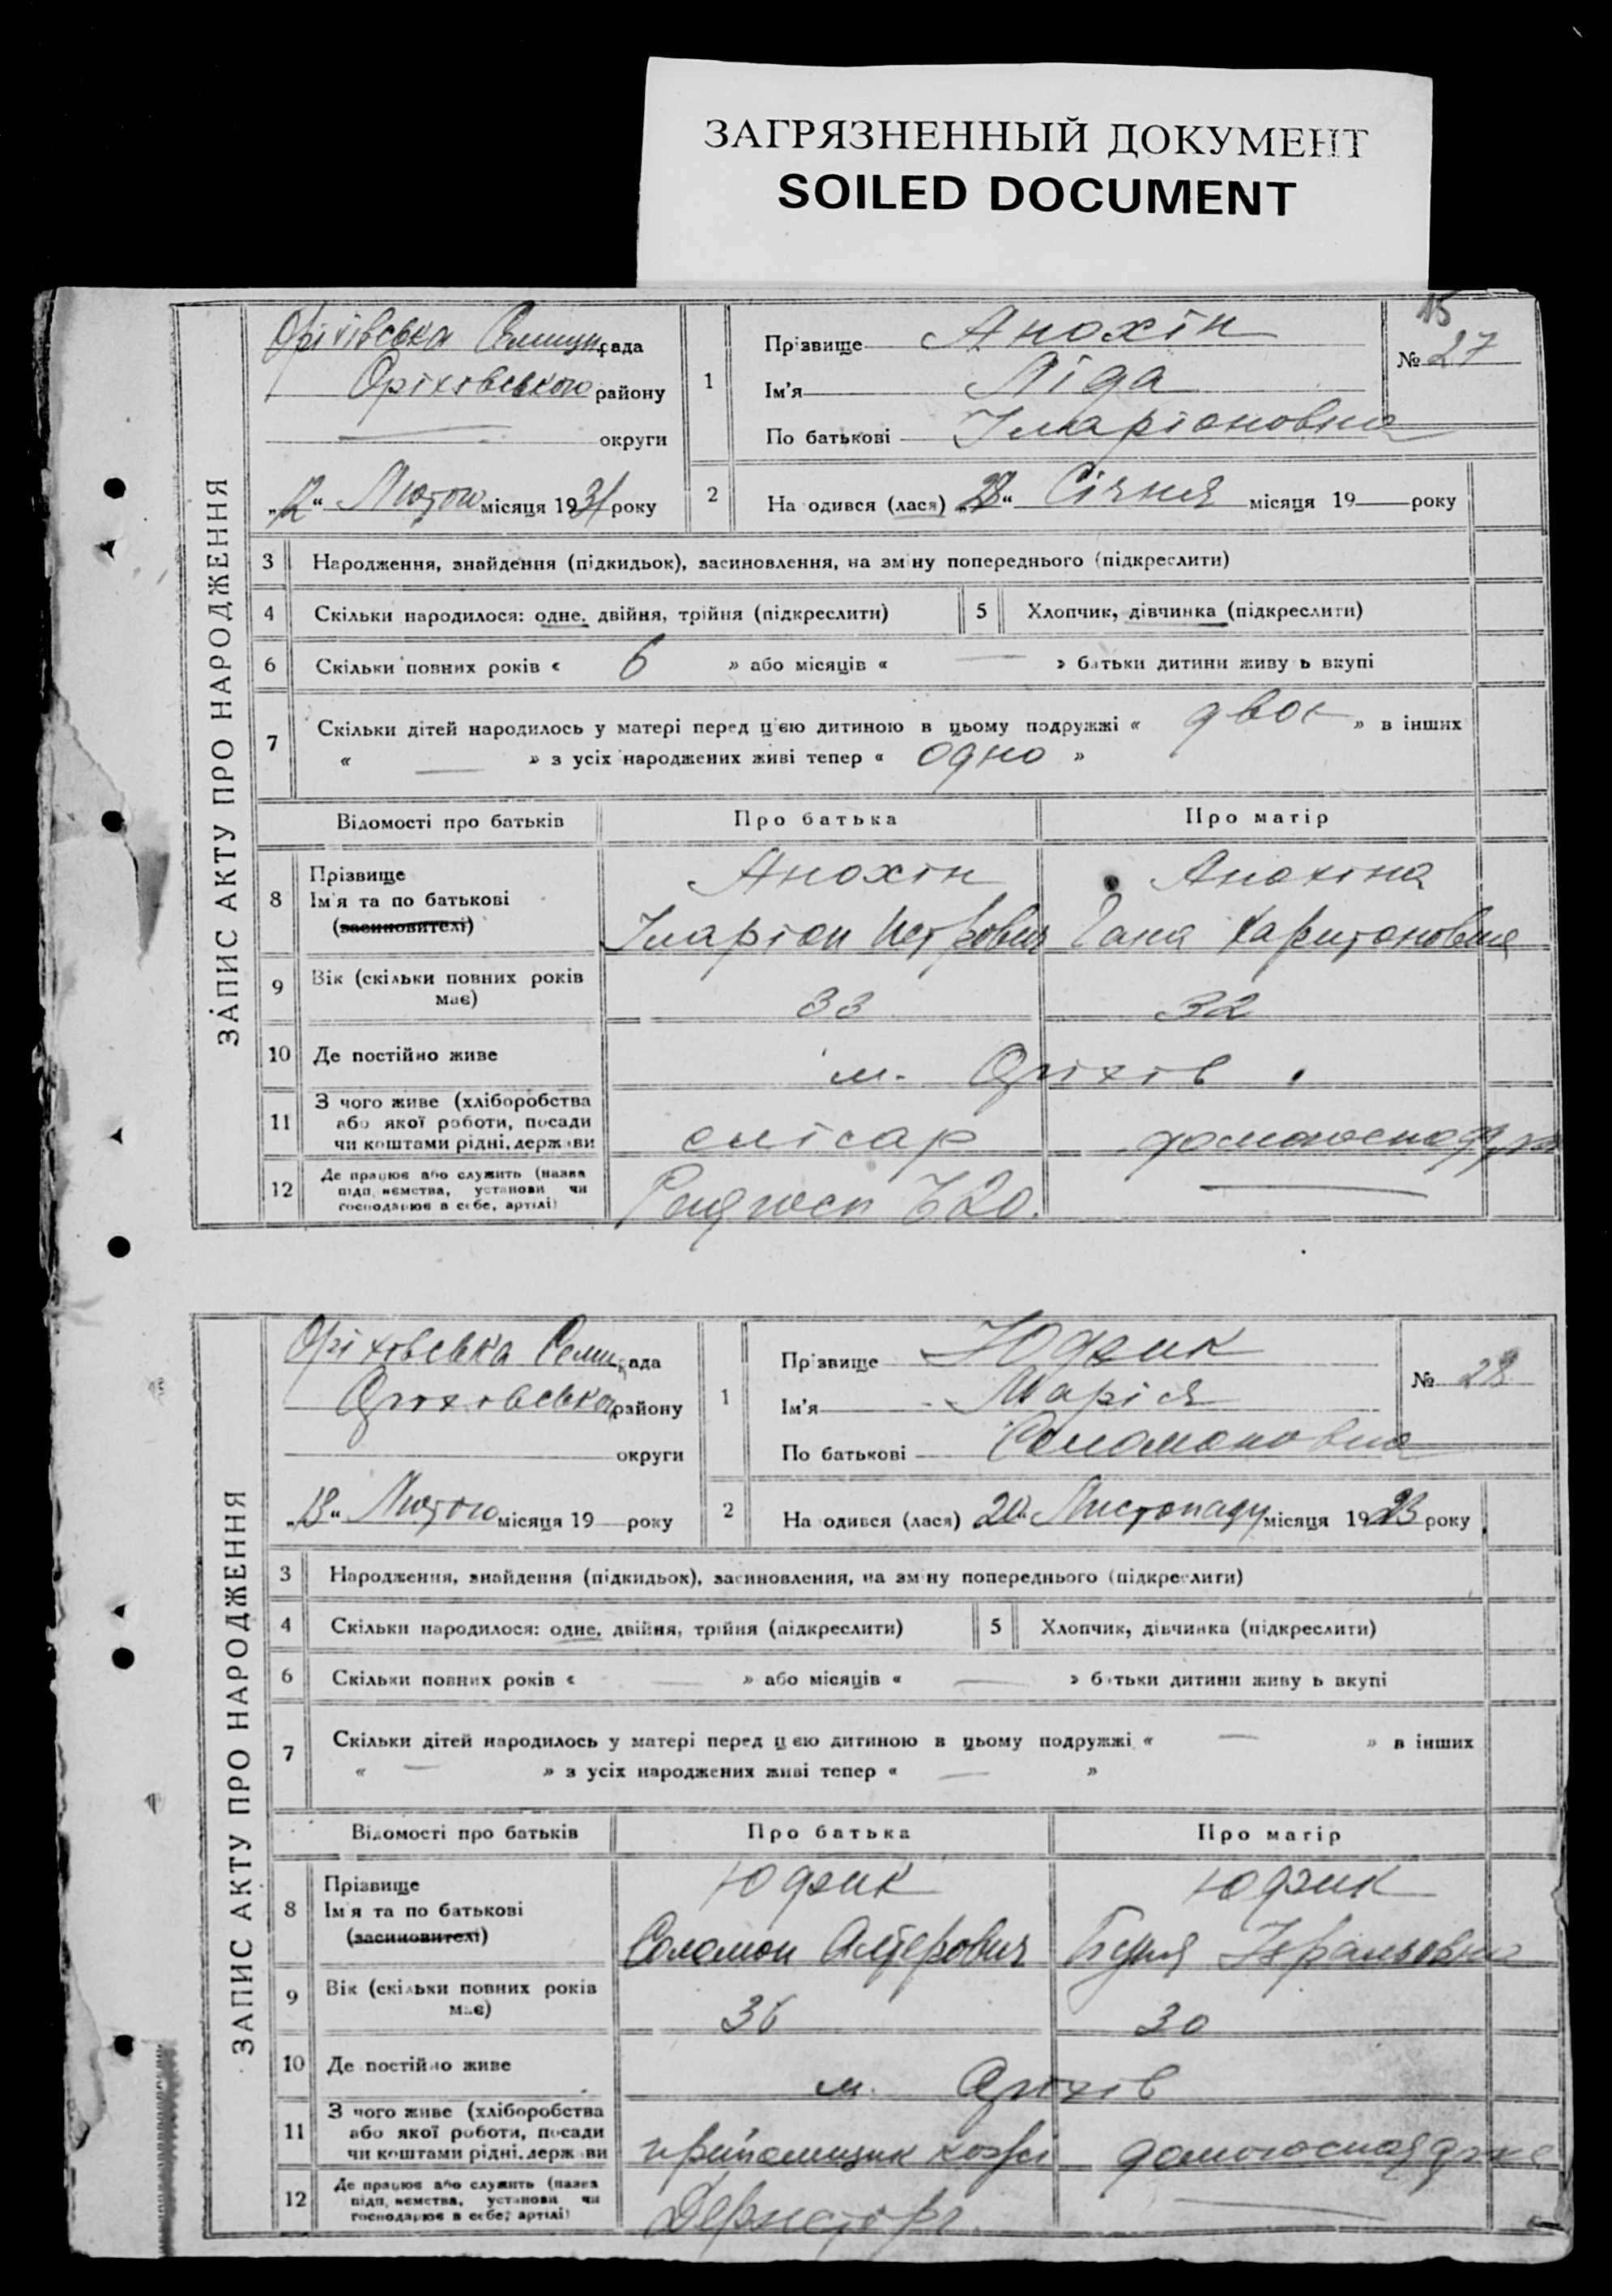 ЗАГРЯЗНЕННЫЙ ДОКУМЕНТ
SOILED DOCUMENT
15
ЗАПИС АКТУ ПРО НАРОДЖЕННЯ
Оріхівська Селищ. рада
Оріхівського району
округи
„12“ Лютого місяця 1931 року
1
Прізвище Анохін
Ім'я Ліда
По батькові Іларіоновна
№ 27
2
На одився (лася) „28“ Січня місяця 19 — року
3 Народження, знайдення (підкидьок), засиновлення, на зміну попереднього (підкреслити)
4 Скільки народилося: одне, двійня, трійня (підкреслити) 5 Хлопчик, дівчинка (підкреслити)
6 Скільки повних років « 6 » або місяців « — » батьки дитини живу ь вкупі
7 Скільки дітей народилось у матері перед цією дитиною в цьому подружжі « двоє » в інших
« — » з усіх народжених живі тепер « одно »
Відомості про батьків Про батька Про матір
8 Прізвище Анохін Анохіна
Ім'я та по батькові
(засиновителі) Іларіон Петрович Гана Харитоновна
9 Вік (скільки повних років
має) 33 32
10 Де постійно живе м. Оріхів
11 З чого живе (хліборобства
або якої роботи, посади
чи коштами рідні, держави слісар домогосподарка
12 Де працює або служить (назва
підп иємства, установи чи
господарює в себе, артілі) —
ЗАПИС АКТУ ПРО НАРОДЖЕННЯ
Оріховська Сели. рада
Оріховська району
округи
„13“ Лютого місяця 19 — року
1
Прізвище Юдзик
Ім'я Марія
По батькові Соломоновна
№ 28
2
На одився (лася) „20“ Листопаду місяця 1923 року
3 Народження, знайдення (підкидьок), засиновлення, на зміну попереднього (підкреслити)
4 Скільки народилося: одне, двійня, трійня (підкреслити) 5 Хлопчик, дівчинка (підкреслити)
6 Скільки повних років « — » або місяців « — » батьки дитини живу ь вкупі
7 Скільки дітей народилось у матері перед цією дитиною в цьому подружжі « — » в інших
« — » з усіх народжених живі тепер « — »
Відомості про батьків Про батька Про матір
8 Прізвище Юдзик Юдзик
Ім'я та по батькові
(засиновителі) Соломон Алтерович
9 Вік (скільки повних років
має) 36 30
10 Де постійно живе м. Оріхів
11 З чого живе (хліборобства
або якої роботи, посади
чи коштами рідні, держави домогосподарка
12 Де працює або служить (назва
підп иємства, установи чи
господарює в себе, артілі) —